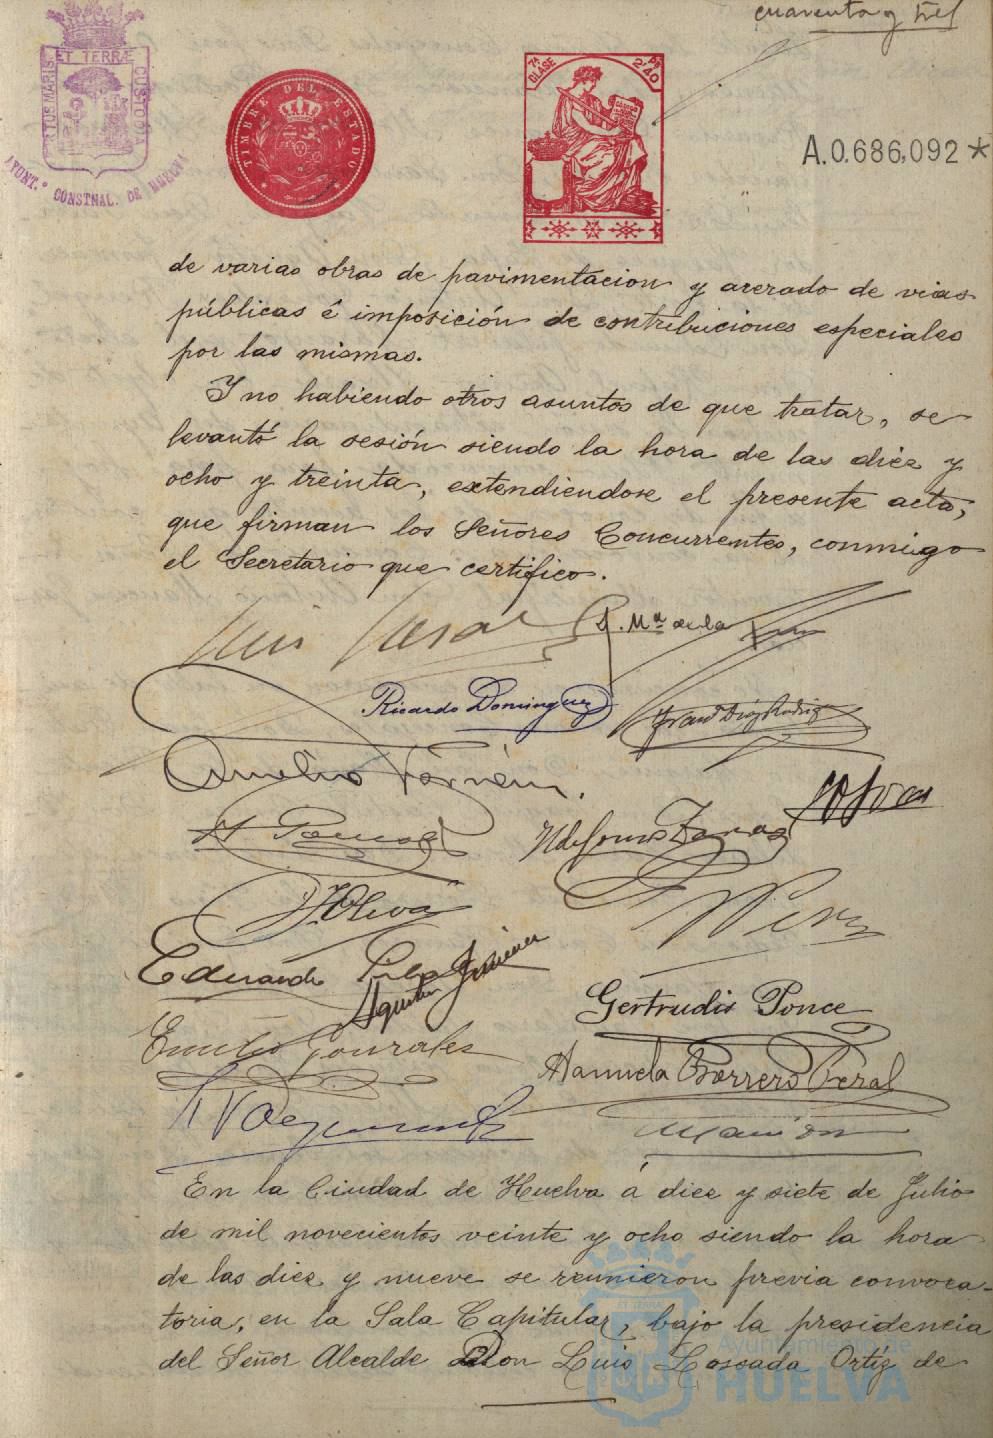 cuarenta y tres
ET TERRÆ
PORTUS MARIS
CUSTODIA
AYUNT.º CONSTNAL. DE HUELVA
TIMBRE DEL ESTADO
7ª CLASE
Pts 2'40
A.0.686,092*
de varias obras de pavimentacion y acerado de vias
públicas é imposición de contribuciones especiales
por las mismas.
Y no habiendo otros asuntos de que tratar, se
levantó la sesión siendo la hora de las diez y
ocho y treinta, extendiendose el presente acta,
que firman los Señores Concurrentes, conmigo
el Secretario que certifico.
J. Mª de la
Ricardo Dominguez
Franco Díaz Rodrig
Aurelio
J. Oliva
Eduardo
Agustin Jimenez
Gertrudis Ponce
Emilio Gonzales
Manuela Borrero Peral
En la Ciudad de Huelva á diez y siete de Julio
de mil novecientos veinte y ocho siendo la hora
de las diez y nueve se reunieron previa convoca-
toria, en la Sala Capitular, bajo la presidencia
del Señor Alcalde Don Luis Loscada Ortíz de
Ayuntamiento de
HUELVA